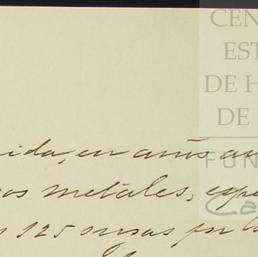 CEN
EST
DE H
DE
FUN
Ca
ida, en años an
os metales, espe
125 onzas por